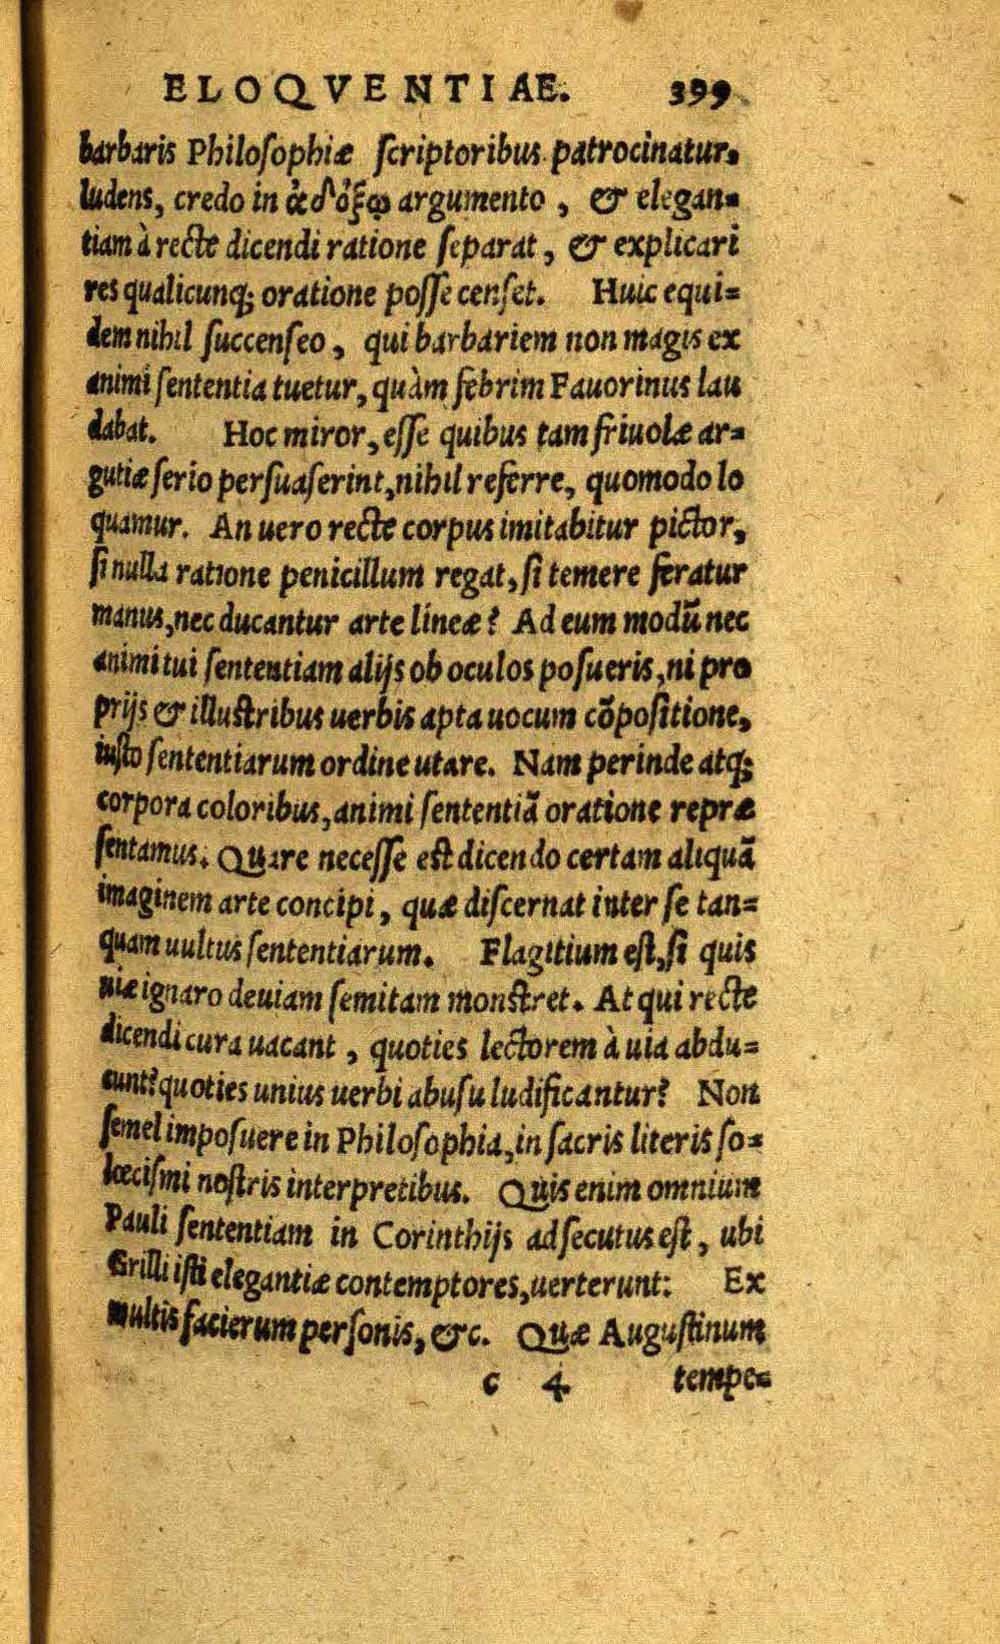 ELOQVENTIAE. 399
barbaris Philosophiæ scriptoribus patrocinatur,
ludens, credo in ἀδόξῳ argumento, & elegan=
tiam à recte dicendi ratione separat, & explicari
res qualicunq; oratione posse censet. Huic equi=
dem nihil succenseo, qui barbariem non magis ex
animi sententia tuetur, quàm febrim Fauorinus lau
dabat. Hoc miror, esse quibus tam friuolæ ar=
gutiæ serio persuaserint, nihil referre, quomodo lo
quamur. An uero recte corpus imitabitur pictor,
si nulla ratione penicillum regat, si temere feratur
manus, nec ducantur arte lineæ? Ad eum modũ nec
animi tui sententiam alijs ob oculos posueris, ni pro
prijs & illustribus uerbis apta uocum cõpositione,
iusto sententiarum ordine utare. Nam perinde atq;
corpora coloribus, animi sententiã oratione repræ
sentamus. Quare necesse est dicendo certam aliquã
imaginem arte concipi, quæ discernat inter se tan=
quam uultus sententiarum. Flagitium est, si quis
uiæ ignaro deuiam semitam monstret. At qui recte
dicendi cura uacant, quoties lectorem à uia abdu=
cunt? quoties unius uerbi abusu ludificantur? Non
semel imposuere in Philosophia, in sacris literis so=
lœcismi nostris interpretibus. Quis enim omnium
Pauli sententiam in Corinthijs adsecutus est, ubi
Grilli isti elegantiæ contemptores, uerterunt: Ex
multis facierum personis, &c. Quæ Augustinum
c 4 tempe=